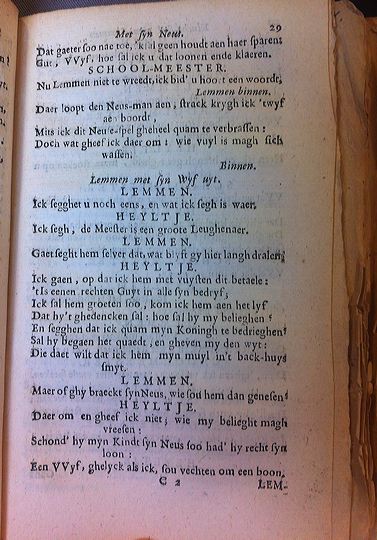 Met syn Neus. 29
Dat gaeter soo nae toe, 'k sal geen houdt aen haer sparen:
Gut, VVyf, hoe sal ick u dat loonen ende klaeren.
SCHOOL-MEESTER.
Nu Lemmen niet te wreedt, ick bid' u hoort een woordt,
Lemmen binnen.
Daer loopt den Neus-man aen, strack krygh ick 'twyf
aen boordt,
Mits ick dit Neuse-spel gheheel quam te verbrassen:
Doch wat gheef ick daer om: wie vuyl is magh sich
wassen.
Binnen.
Lemmen met syn Wyf uyt.
LEMMEN.
Ick segghet u noch eens, en wat ick segh is waer.
HEYLTJE.
Ick segh, de Meester is een groote Leughenaer.
LEMMEN.
Gaet seght hem selver dat, wat blyft gy hier langh dralen,
HEYLTJE.
Ick gaen, op dat ick hem met vuysten dit betaele:
'tIs eenen rechten Guyt in alle syn bedryf,
Ick sal hem groeten soo, kom ick hem aen het lyf
Dat hy't ghedencken sal: hoe sal hy my belieghen?
En segghen dat ick quam myn Koningh te bedrieghen?
Sal hy begaen het quaedt, en gheven my den wyt:
Die daer wilt dat ick hem myn muyl in't back-huys
smyt.
LEMMEN.
Maer of ghy braeckt syn Neus, wie sou hem dan genesen?
HEYLTJE.
Daer om en gheef ick niet, wie my belieght magh
vreesen:
Schond' hy myn Kindt syn Neus soo had' hy recht syn
loon:
Een VVyf, ghelyck als ick, sou vechten om een boon.
C 2 LEM-